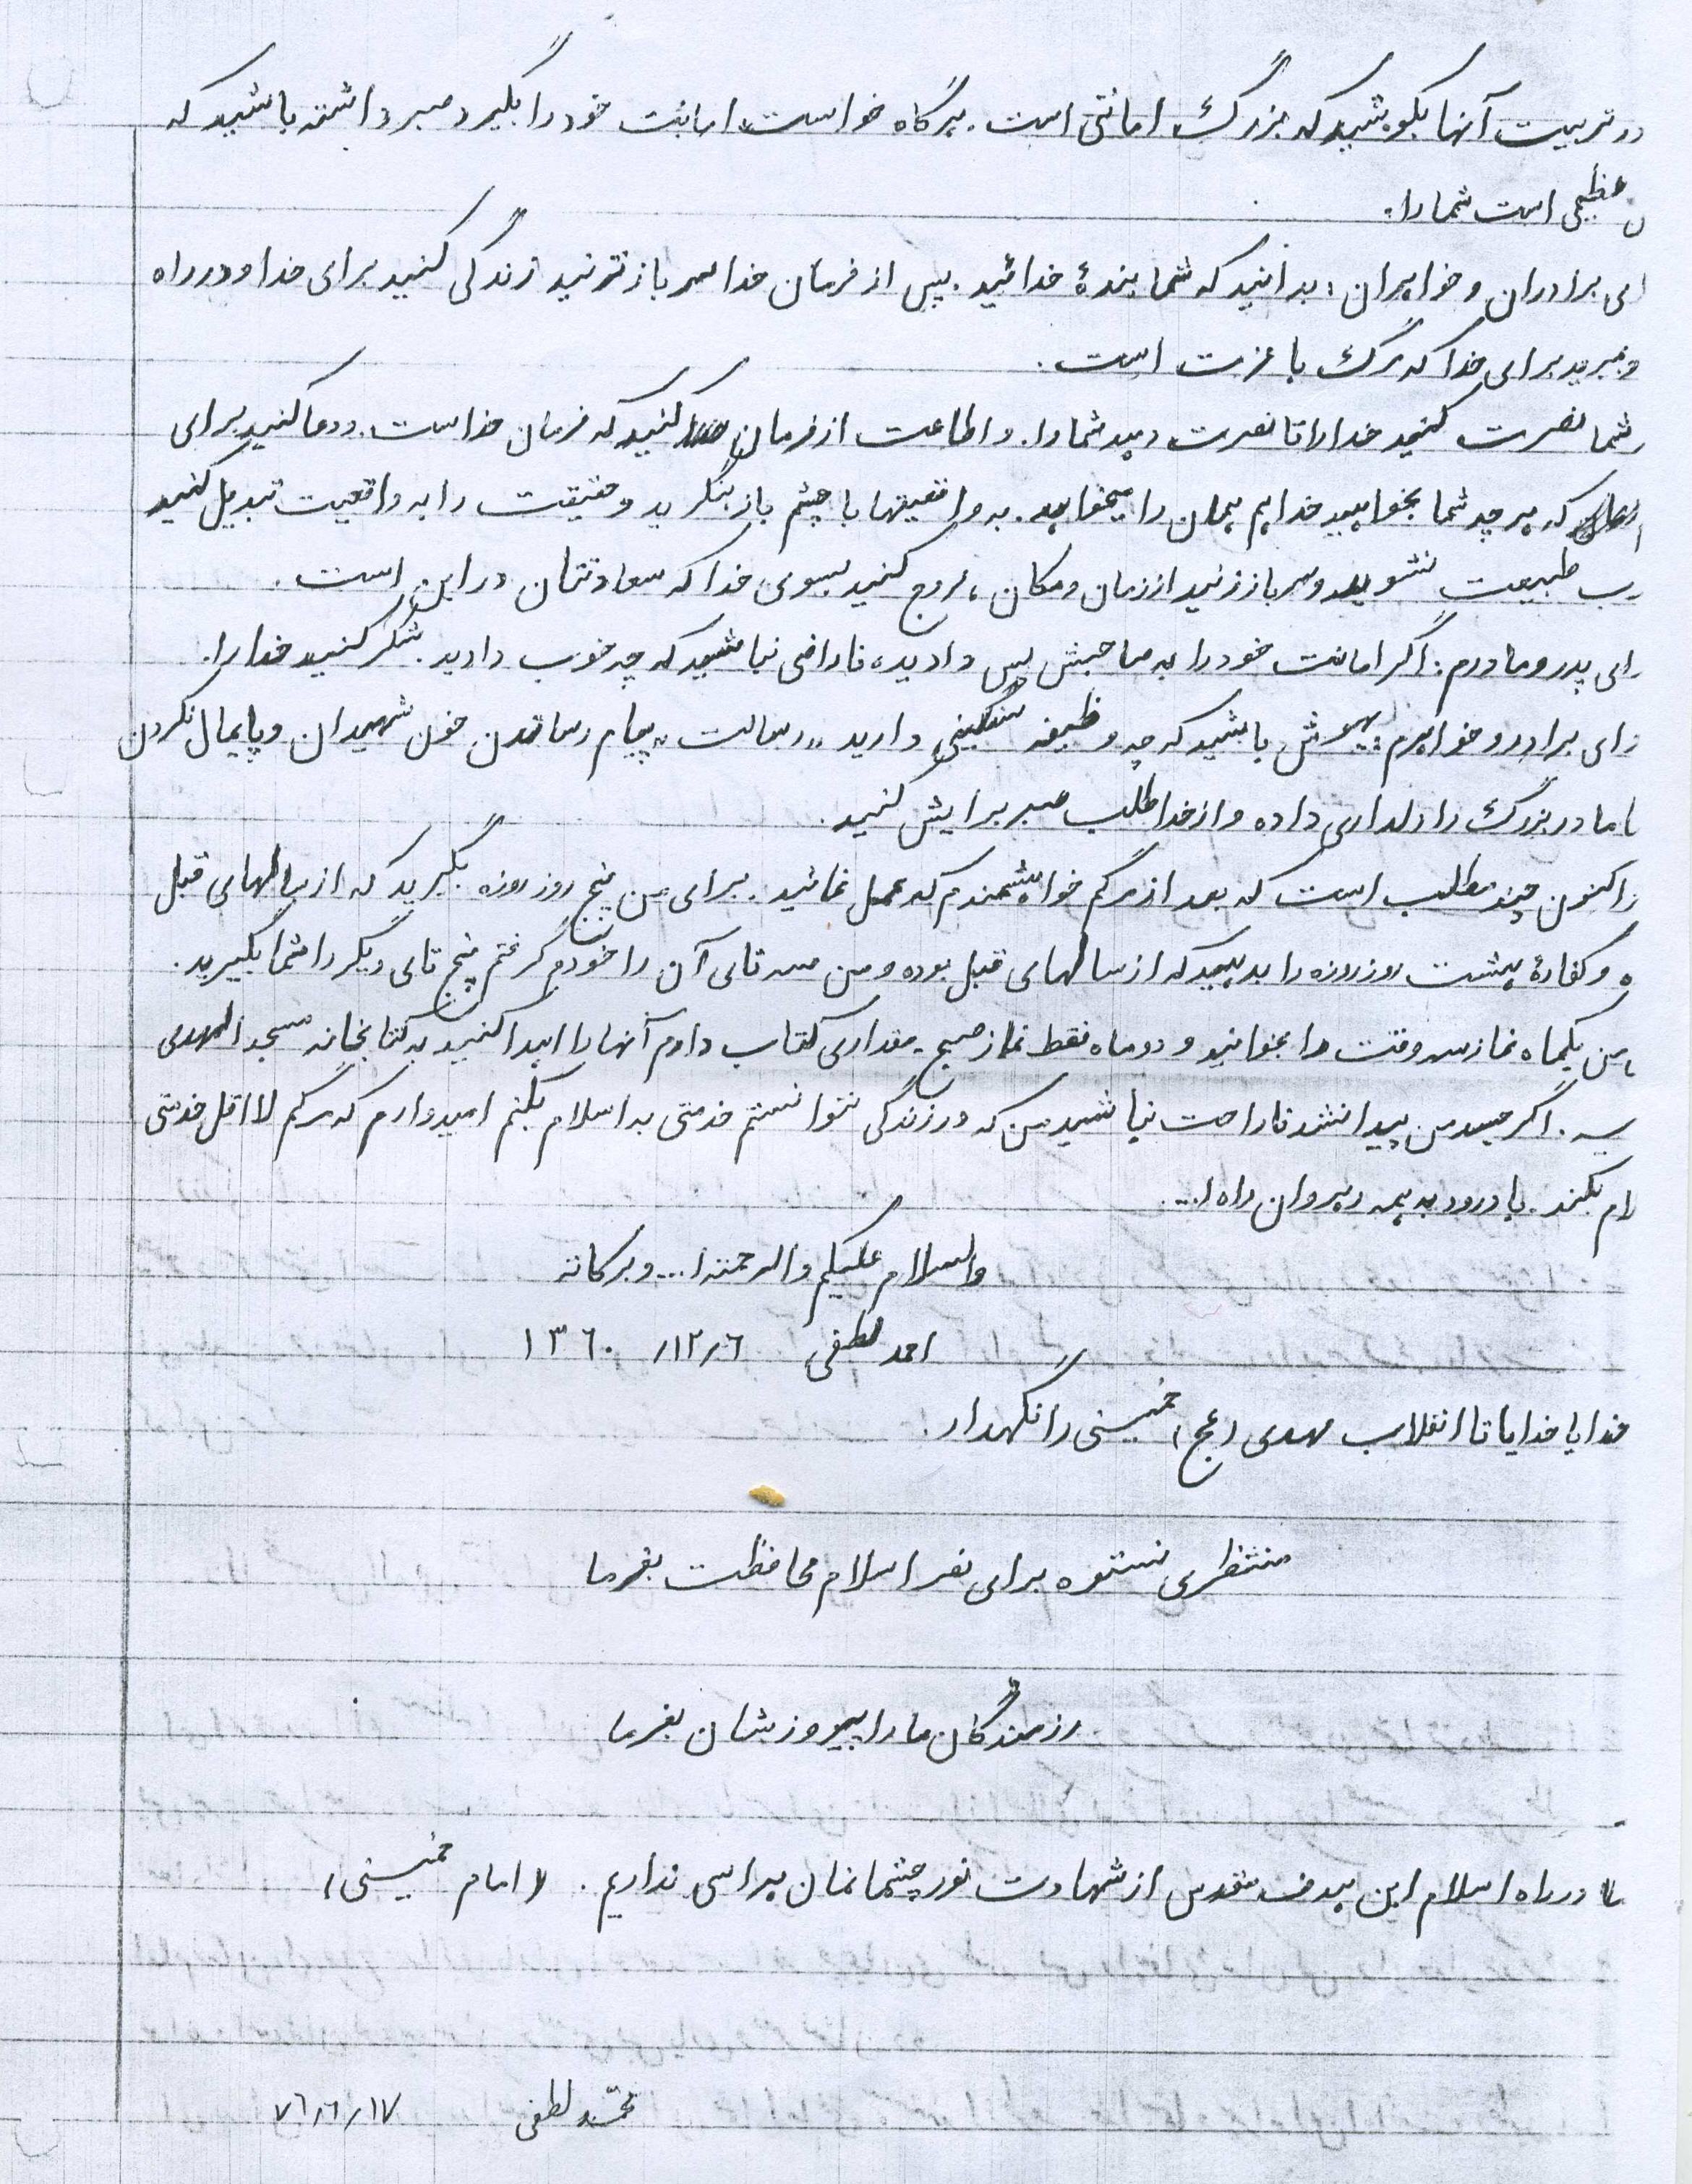 در تربیت آنها بکوشید که بزرگ امانتی است. هرگاه خواست امانت خود را بگیرد صبر داشته باشید که
عظیمی است شما را.
ای برادران و خواهران: بدانید که شما بندهٔ خدائید. پس از فرمان خدا سرباز نزنید زندگی کنید برای خدا و در راه
و بمیرید برای خدا که مرگ با عزت است.
شما نصرت کنید خدا را تا نصرت دهد شما را. و اطاعت از فرمان کنید که فرمان خداست. و دعا کنید برای
که هر چه شما بخواهید خدا هم همان را میخواهد. به واقعیتها با چشم باز بنگرید و حقیقت را به واقعیت تبدیل کنید
طبیعت نشوید و سرباز زنید از زمان و مکان، عروج کنید بسوی خدا که سعادتتان در این است.
ای پدر و مادرم: اگر امانت خود را به صاحبش پس دادید، ناراضی نباشید که چه خوب دادید. شکر کنید خدا را.
ای برادر و خواهرم: بهوش باشید که چه وظیفه سنگینی دارید "رسالت" پیام رساندن خون شهیدان و پایمال نکردن
مادر بزرگ را دلداری داده و از خدا طلب صبر برایش کنید.
اکنون چند مطلب است که بعد از مرگم خواهشمندم که عمل نمائید. برای من پنج روز روزه بگیرید که از سالهای قبل
و کفارهٔ هشت روز روزه را بدهید که از سالهای قبل بوده و من سه تای آن را خودم گرفتم پنج تای دیگر را شما بگیرید.
من یکماه نماز سه وقت را بخوانید و دو ماه فقط نماز صبح. مقداری کتاب دارم آنها را اهدا کنید به کتابخانه مسجد المهدی
اگر جسد من پیدا نشد ناراحت نباشید من که در زندگی نتوانستم خدمتی به اسلام بکنم امیدوارم که مرگم لااقل خدمتی
بکند. با درود به همه رهروان راه ا...
والسلام علیکم والرحمته ا... و برکاته
احمد لطفی ۱۳۶۰/۱۲/۶
خدایا خدایا تا انقلاب مهدی (عج) خمینی را نگهدار.
منتظری نستوه برای نصر اسلام محافظت بفرما
رزمندگان ما را پیروزشان بفرما
در راه اسلام این هدف مقدس از شهادت نور چشمانمان هراسی نداریم. (امام خمینی)
محمد لطفی ۷۶/۶/۱۷